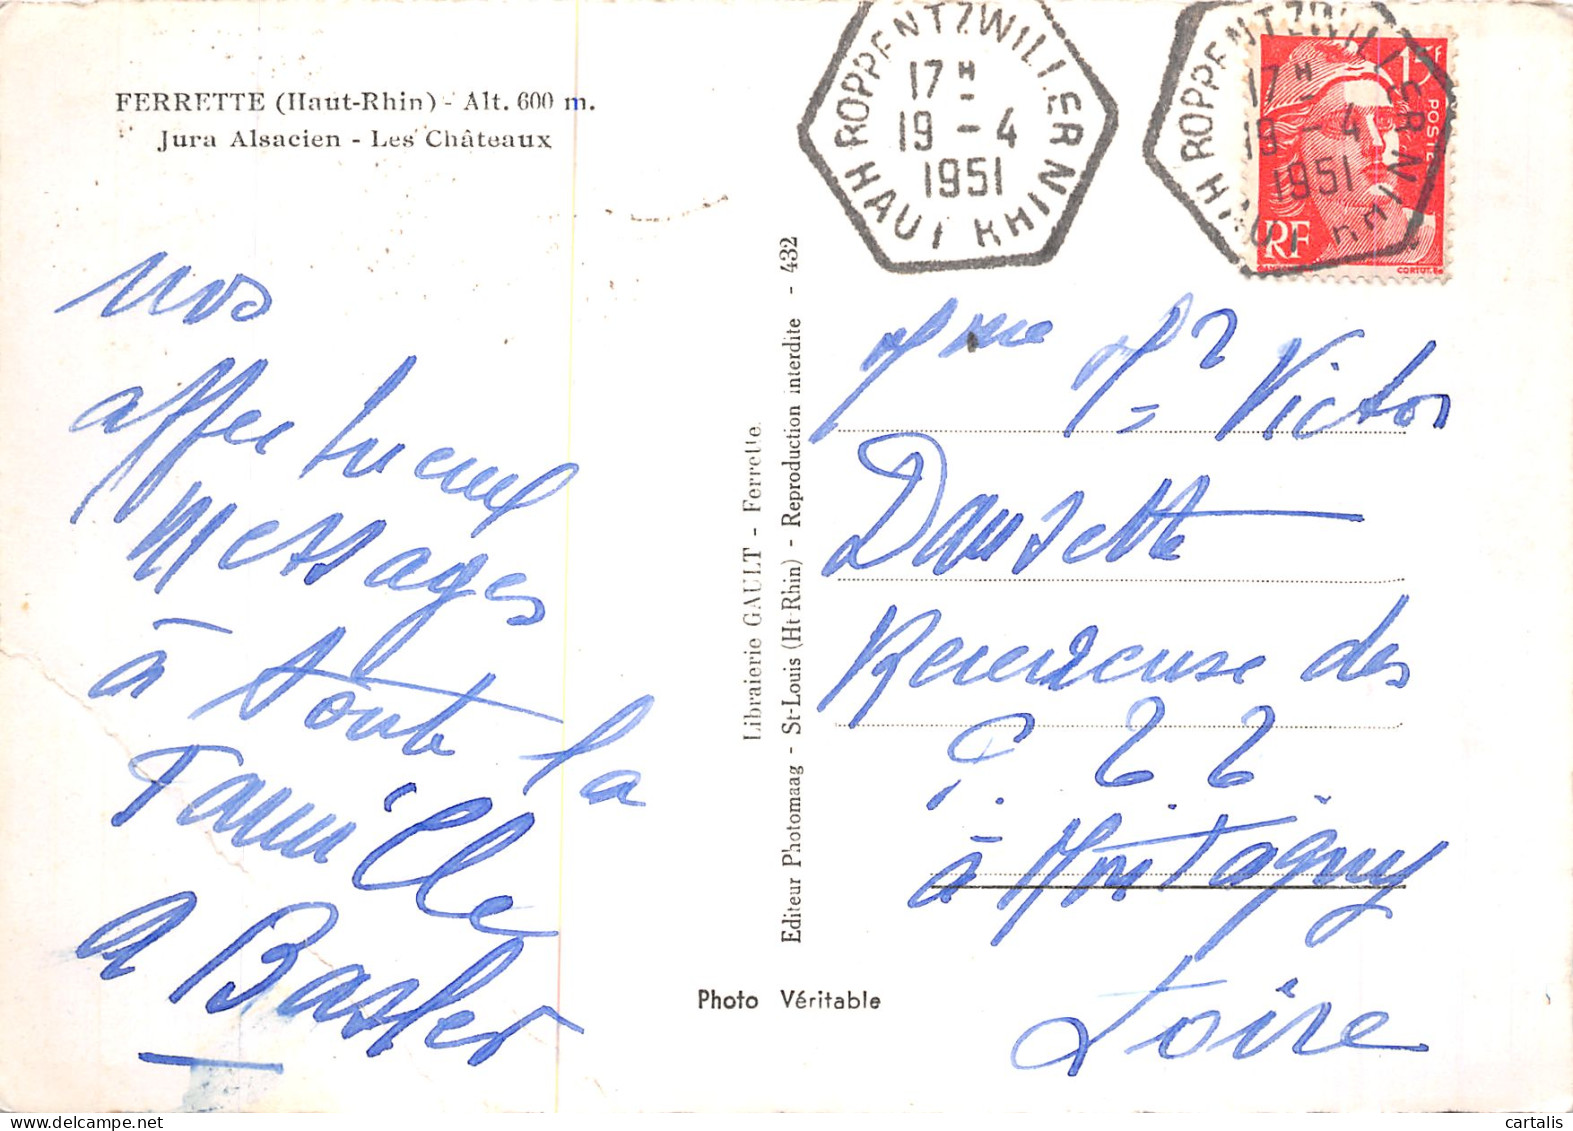 FERRETTE (Haut-Rhin) - Alt. 600 m.
Jura Alsacien - Les Châteaux
nos
affectueux
messages
à toute la
Famille
A Basler
Librairie GAULT - Ferrette.
Editeur Photomaag - St-Louis (Ht-Rhin) - Reproduction interdite - 432
Photo Véritable
ROPPENTZWILLER
17 H
19 - 4
1951
HAUT RHIN
ROPPENTZWILLER
17 H
19 - 4
1951
HAUT RHIN
15F
POSTES
RF
GANDON
CORTOT.Sc
Mme Victor
Dansette
Receveuse des
P. T. T.
à Montagny
Loire
cartalis